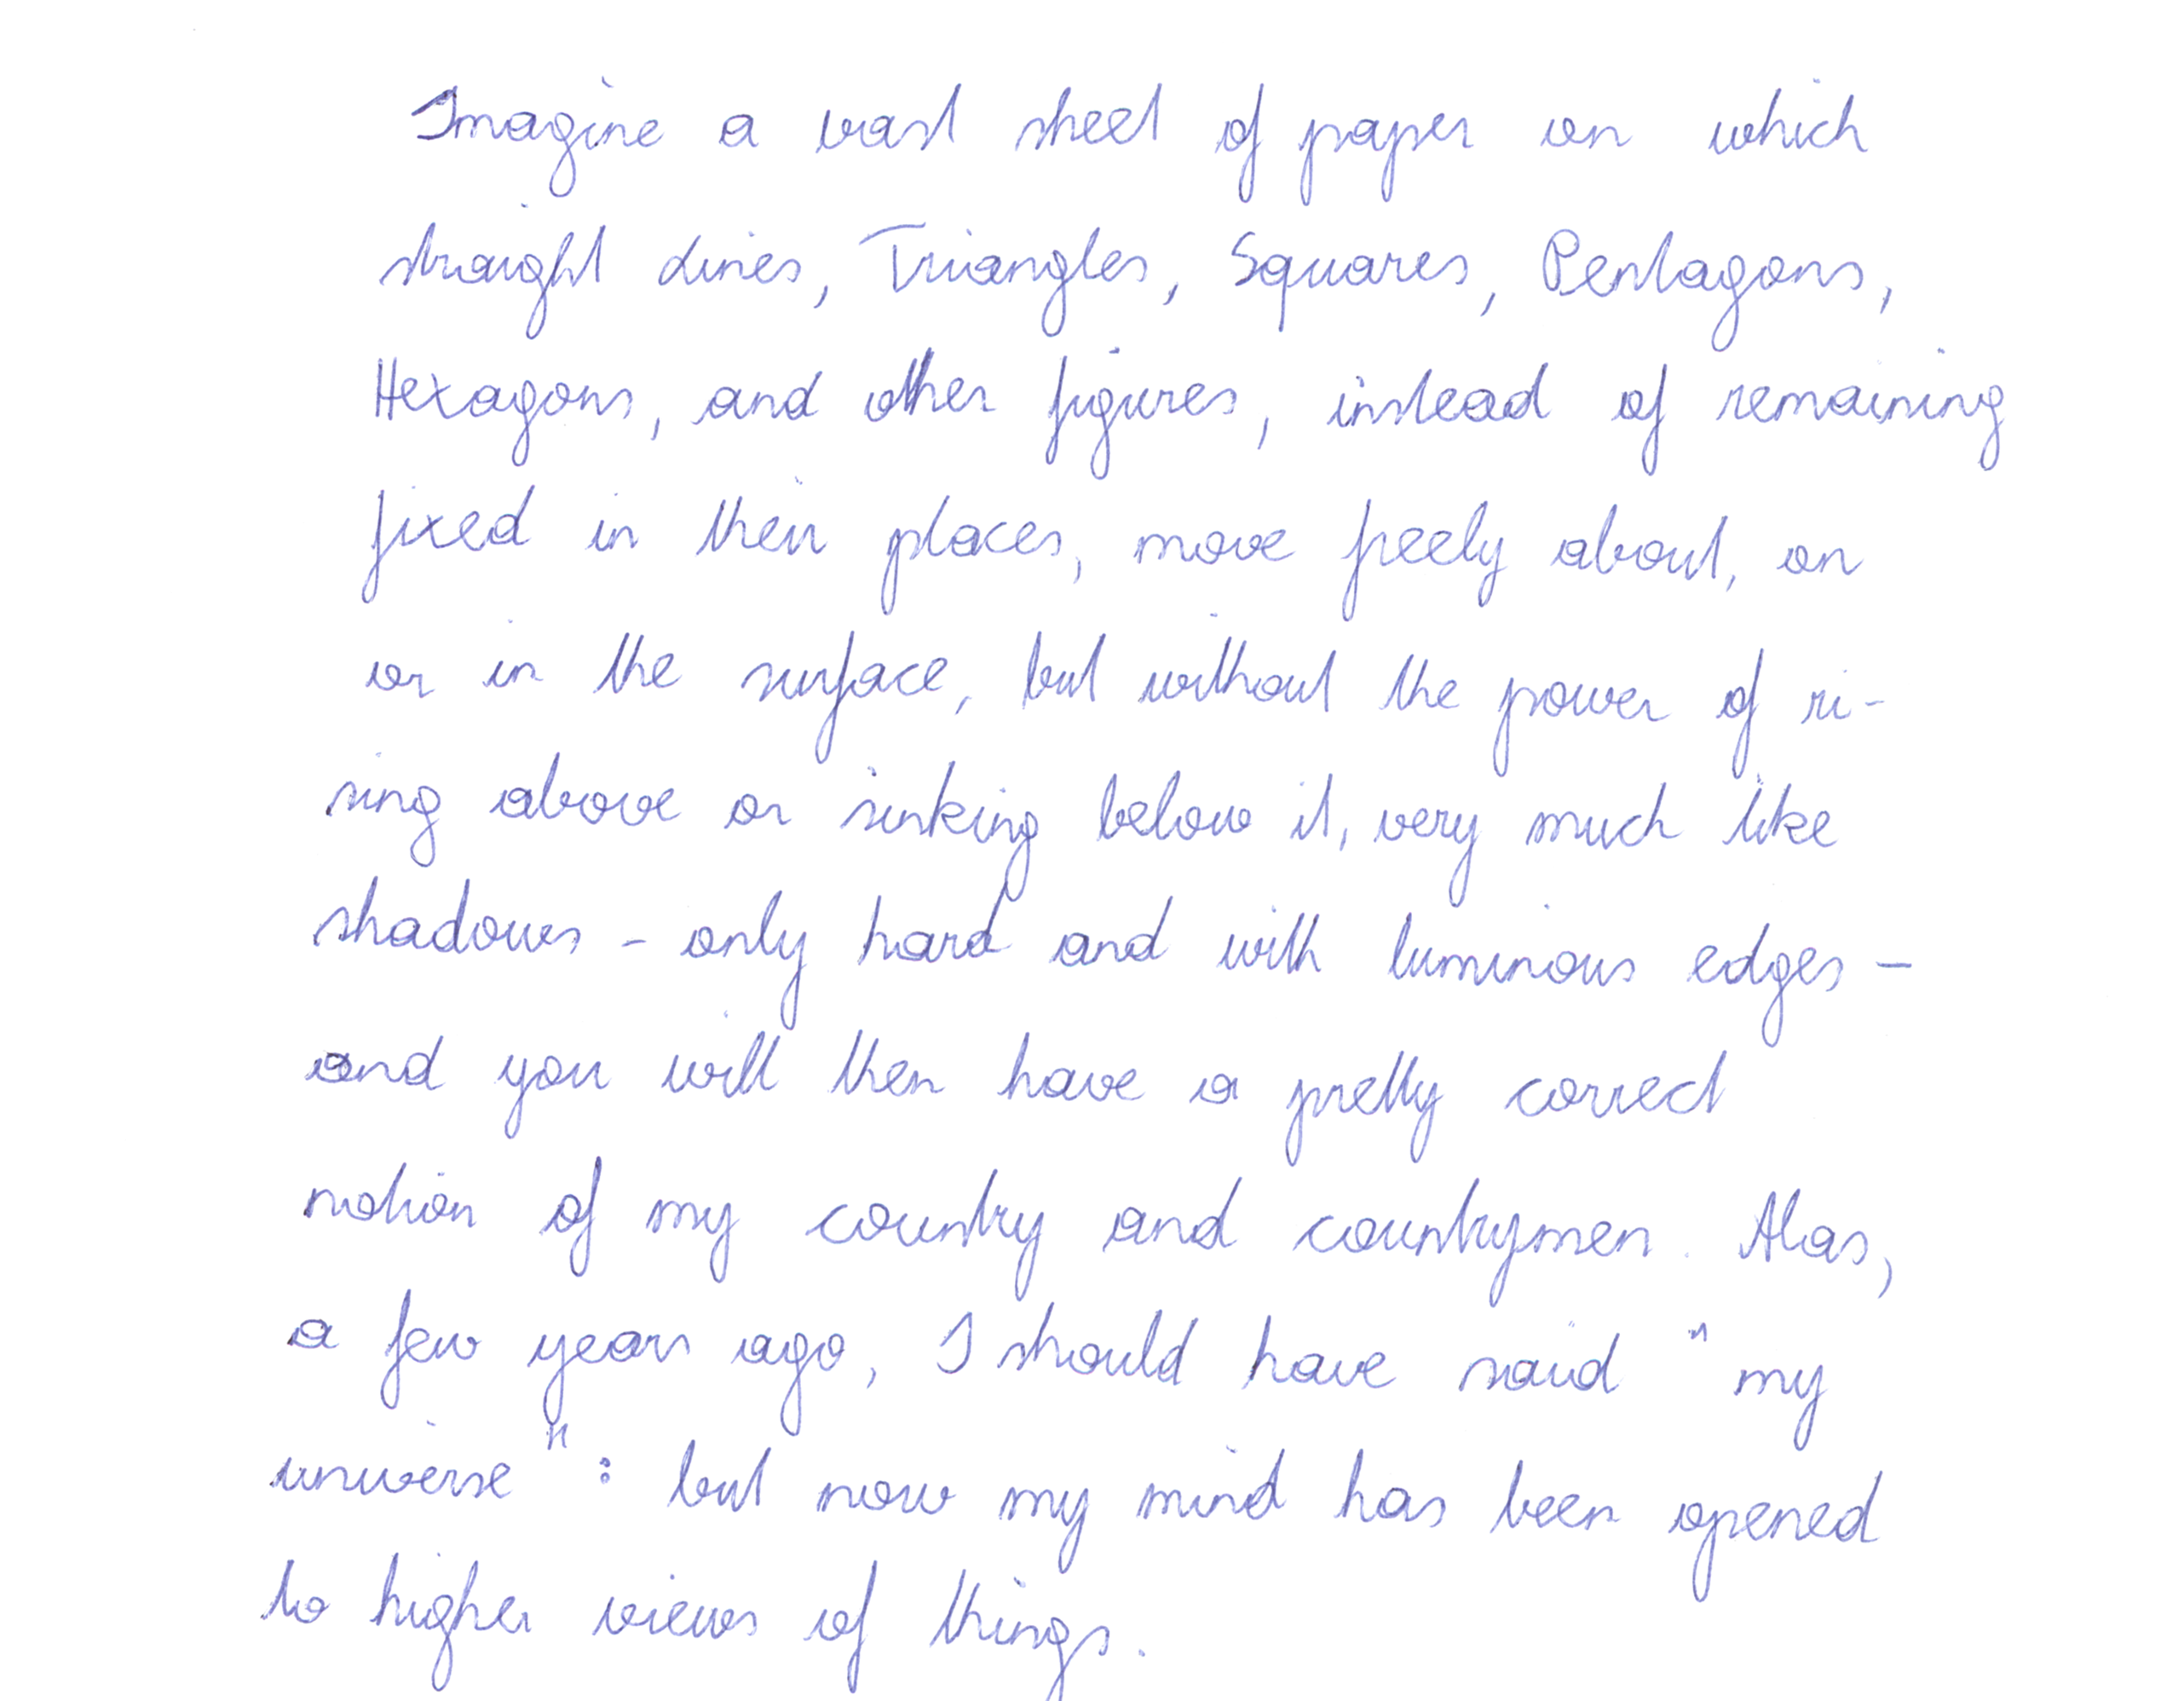 Imagine a vast sheet of paper on which
straight Lines, Triangles, Squares, Pentagons,
Hexagons, and other figures, instead of remaining
fixed in their places, move freely about, on
or in the surface, but without the power of ri-
sing above or sinking below it, very much like
shadows - only hard and with luminous edges -
and you will then have a pretty correct
notion of my country and countrymen. Alas,
a few years ago, I should have said "my
universe": but now my mind has been opened
to higher views of things.